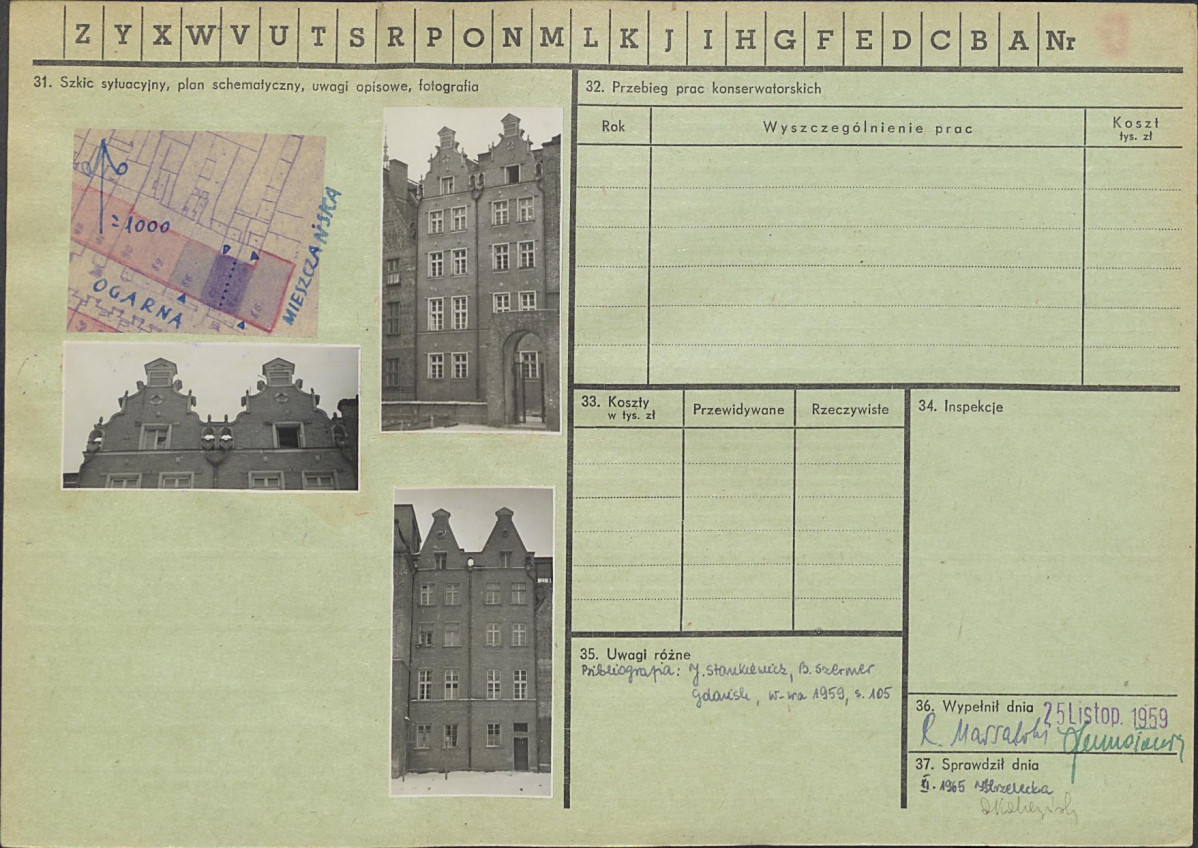 Z Y X W V U T S R P O N M L K J I H G F E D C B A Nr
31. Szkic sytuacyjny, plan schematyczny, uwagi opisowe, fotografia
1:1000
OGARNA
MIESZCZAŃSKA
32. Przebieg prac konserwatorskich
Rok
Wyszczególnienie prac
Koszt
tys. zł
33. Koszty
w tys. zł
Przewidywane
Rzeczywiste
34. Inspekcje
35. Uwagi różne
Bibliografia: J. Stankiewicz, B. Szermer
Gdańsk, W-wa 1959, s. 105
36. Wypełnił dnia 25 Listop. 1959
R. Massalski
37. Sprawdził dnia
1965